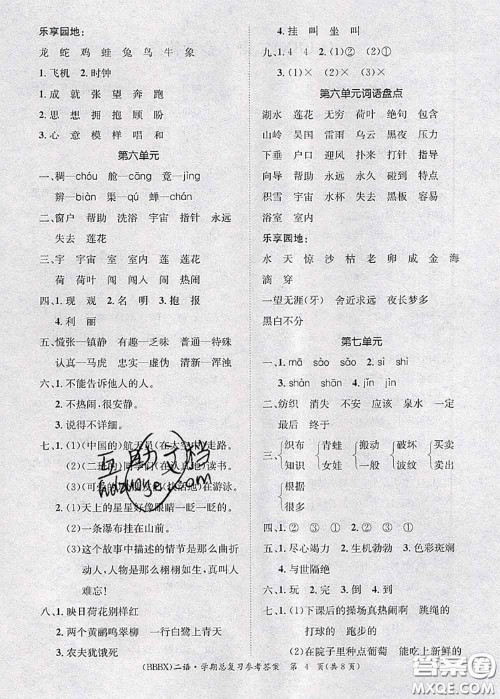 乐享园地：
龙 蛇 鸡 蛙 兔 鸟 牛 象
1. 飞机 2. 时钟
1. 成 就 张 望 奔 跑
2. 思 想 拥 抱 顾 盼
3. 心 意 模 样 唱 和
第六单元
一、稠—chóu 舱—cāng 竟—jìng
辨—biàn 渠—qú 蝉—chán
二、窗户 帮助 洗浴 宇宙 指针 永远
失去 莲花
三、宇 宇宙 室 室内 莲 莲花
荷 荷叶 闯 闯入 闹 热闹
四、1. 现 观 2. 明 名 3. 抱 报
4. 利 丽
五、慌张—镇静 有趣—乏味 普通—特殊
认真—马虎 忠实—虚伪 清新—浑浊
六、1. 不能告诉他人的人。
2. 不热闹，很安静。
3. 说得不详细。
七、1. (1)(中国的)航天员(在太空中)走路。
(2)(二班的)同学们(在认真地)读书。
(3)(可爱的)(快活地)在游泳。
2. (1)天上的星星好像眼睛一眨一眨的。
(2)一条瀑布挂在山前。
(3)这个故事中描述的情节是那么曲折
动人，人物是那么栩栩如生，真叫人
难忘！
八、1. 映日荷花别样红
2. 两个黄鹂鸣翠柳 一行白鹭上青天
3. 农夫犹饿死
4. 挂 叫 坐 叫
九、1. 4 4 2. (1)① (2)①
3. (1)× (2)×
第六单元词语盘点
湖水 莲花 无穷 荷叶 绝句 包含
山岭 吴国 雷雨 乌云 黑夜 压力
下垂 户口 迎面 扑来 蜘蛛 指南针
向导 帮助 永远 碰到 特别 积极
积雪 宇宙 水杯 失去 观看 容易
浴室 室内
乐享园地：
水 天 惊 沙 枯 老 卵 咸 金 海
滴 穿
一望无涯(牙) 舍近求远 夜长梦多
黑白不分
第七单元
一、1. mā sǎo sào 2. sì shì
3. shān shàn 4. jīn jìn
二、纺织 消失 不安 应该 泉水 一定
最后 终于
三、{织布 {青蛙 {搬动 {破坏 {买卖
{知识 {女娃 {般波 {坡度 {卖出
{根据
{很多
四、② ① ② ① ②
五、1. 尽心竭力 2. 生机勃勃 3. 色彩斑斓
4. 与世隔绝
六、1. 玩 2. 完 3. 碗
七、1. (1)下课后的操场真热闹啊 跳绳的
打球的 跑步的
(2)在院子里种点葡萄 能吃上新鲜的
(BBBX)二语·学期总复习参考答案 第 4 页(共 8 页)